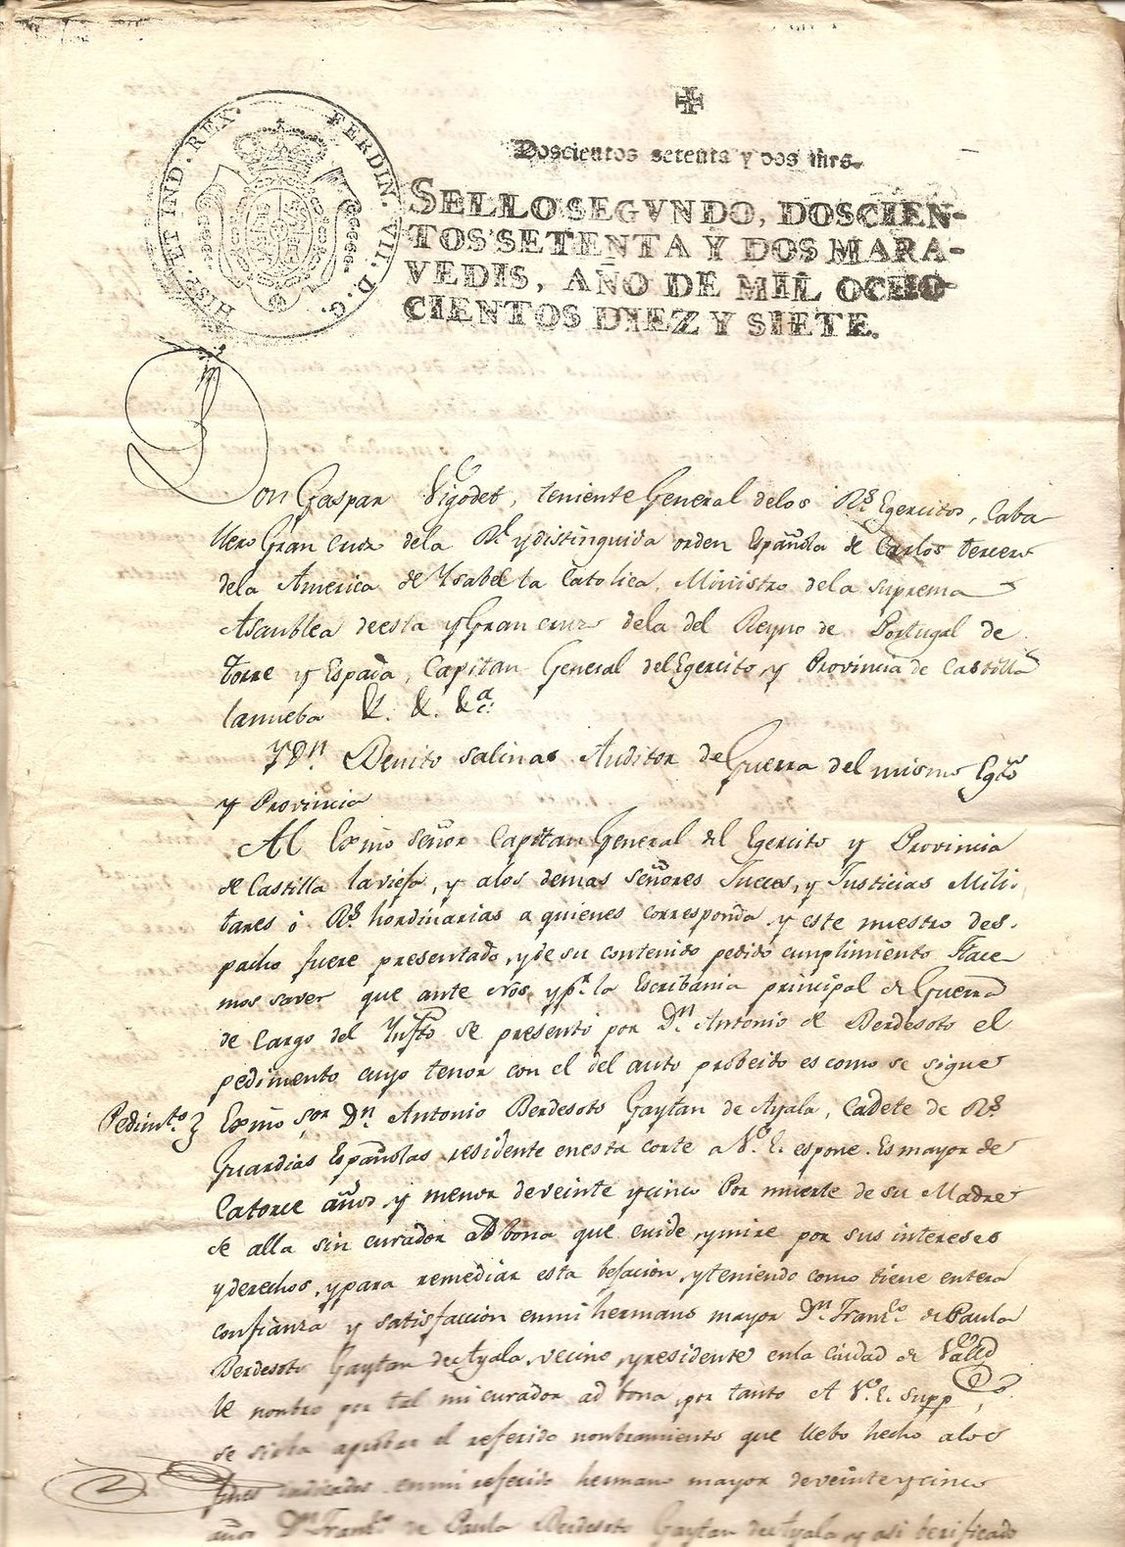 HISP. ET IND. REX. FERDIN. VII. D. G.
Doscientos setenta y dos mrs.
SELLO SEGVNDO, DOSCIEN-
TOS SETENTA Y DOS MARA-
VEDIS, AÑO DE MIL OCHO-
CIENTOS DIEZ Y SIETE.
Don Gaspar Vigodet, teniente General delos Rs. Egercitos, Caba
llero Gran Cruz dela Rl. y distinguida orden Española de Carlos tercero
dela America de Ysabel la Catolica, Ministro dela suprema
Asamblea deesta y Gran cruz dela del Reyno de Portugal de
Torre y Espada, Capitan General del Egercito, y Provincia de Castilla
lanueba &. &. &a.
Y Dn. Benito Salinas Auditor de Guerra del mismo Egto.
y Provincia
Al Exmo señor Capitan General del Egercito y Provincia
de Castilla la vieja, y alos demas señores Jueces, y Justicias Mili-
tares ó Rs. hordinarias a quienes corresponda y este nuestro des-
pacho fuere presentado, y de su contenido pedido cumplimiento Hace-
mos saver que ante Nos, y pr. la Escribania principal de Guerra
de cargo del Ynfto se presentó por Dn. Antonio de Berdesoto el
pedimento cuyo tenor con el del auto probeido es como se sigue
Pedimto. Exmo sor Dn. Antonio Berdesoto Gaytan de Ayala, Cadete de Rs.
Guardias Españolas residente enesta corte a V. E. espone. Es mayor de
Catorce años y menor de veinte y cinco Por muerte de su Madre
se alla sin curador ad bona que cuide, y mire por sus intereses
y derechos, y para remediar esta bejacion, y teniendo como tiene entera
confianza y satisfaccion enmi hermano mayor Dn. Franco. de Paula
Berdesoto Gaytan de Ayala, vecino, y residente enla Ciudad de Valld
le nonbro por tal mi curador ad bona, por tanto A V. E. suppca.
se sirba aprobar el referido nonbramiento que llebo hecho alos
fines indicados enmi referido hermano mayor de veinte y cinco
años Dn. Franco. de Paula Berdesoto Gaytan de Ayala, y asi berificado